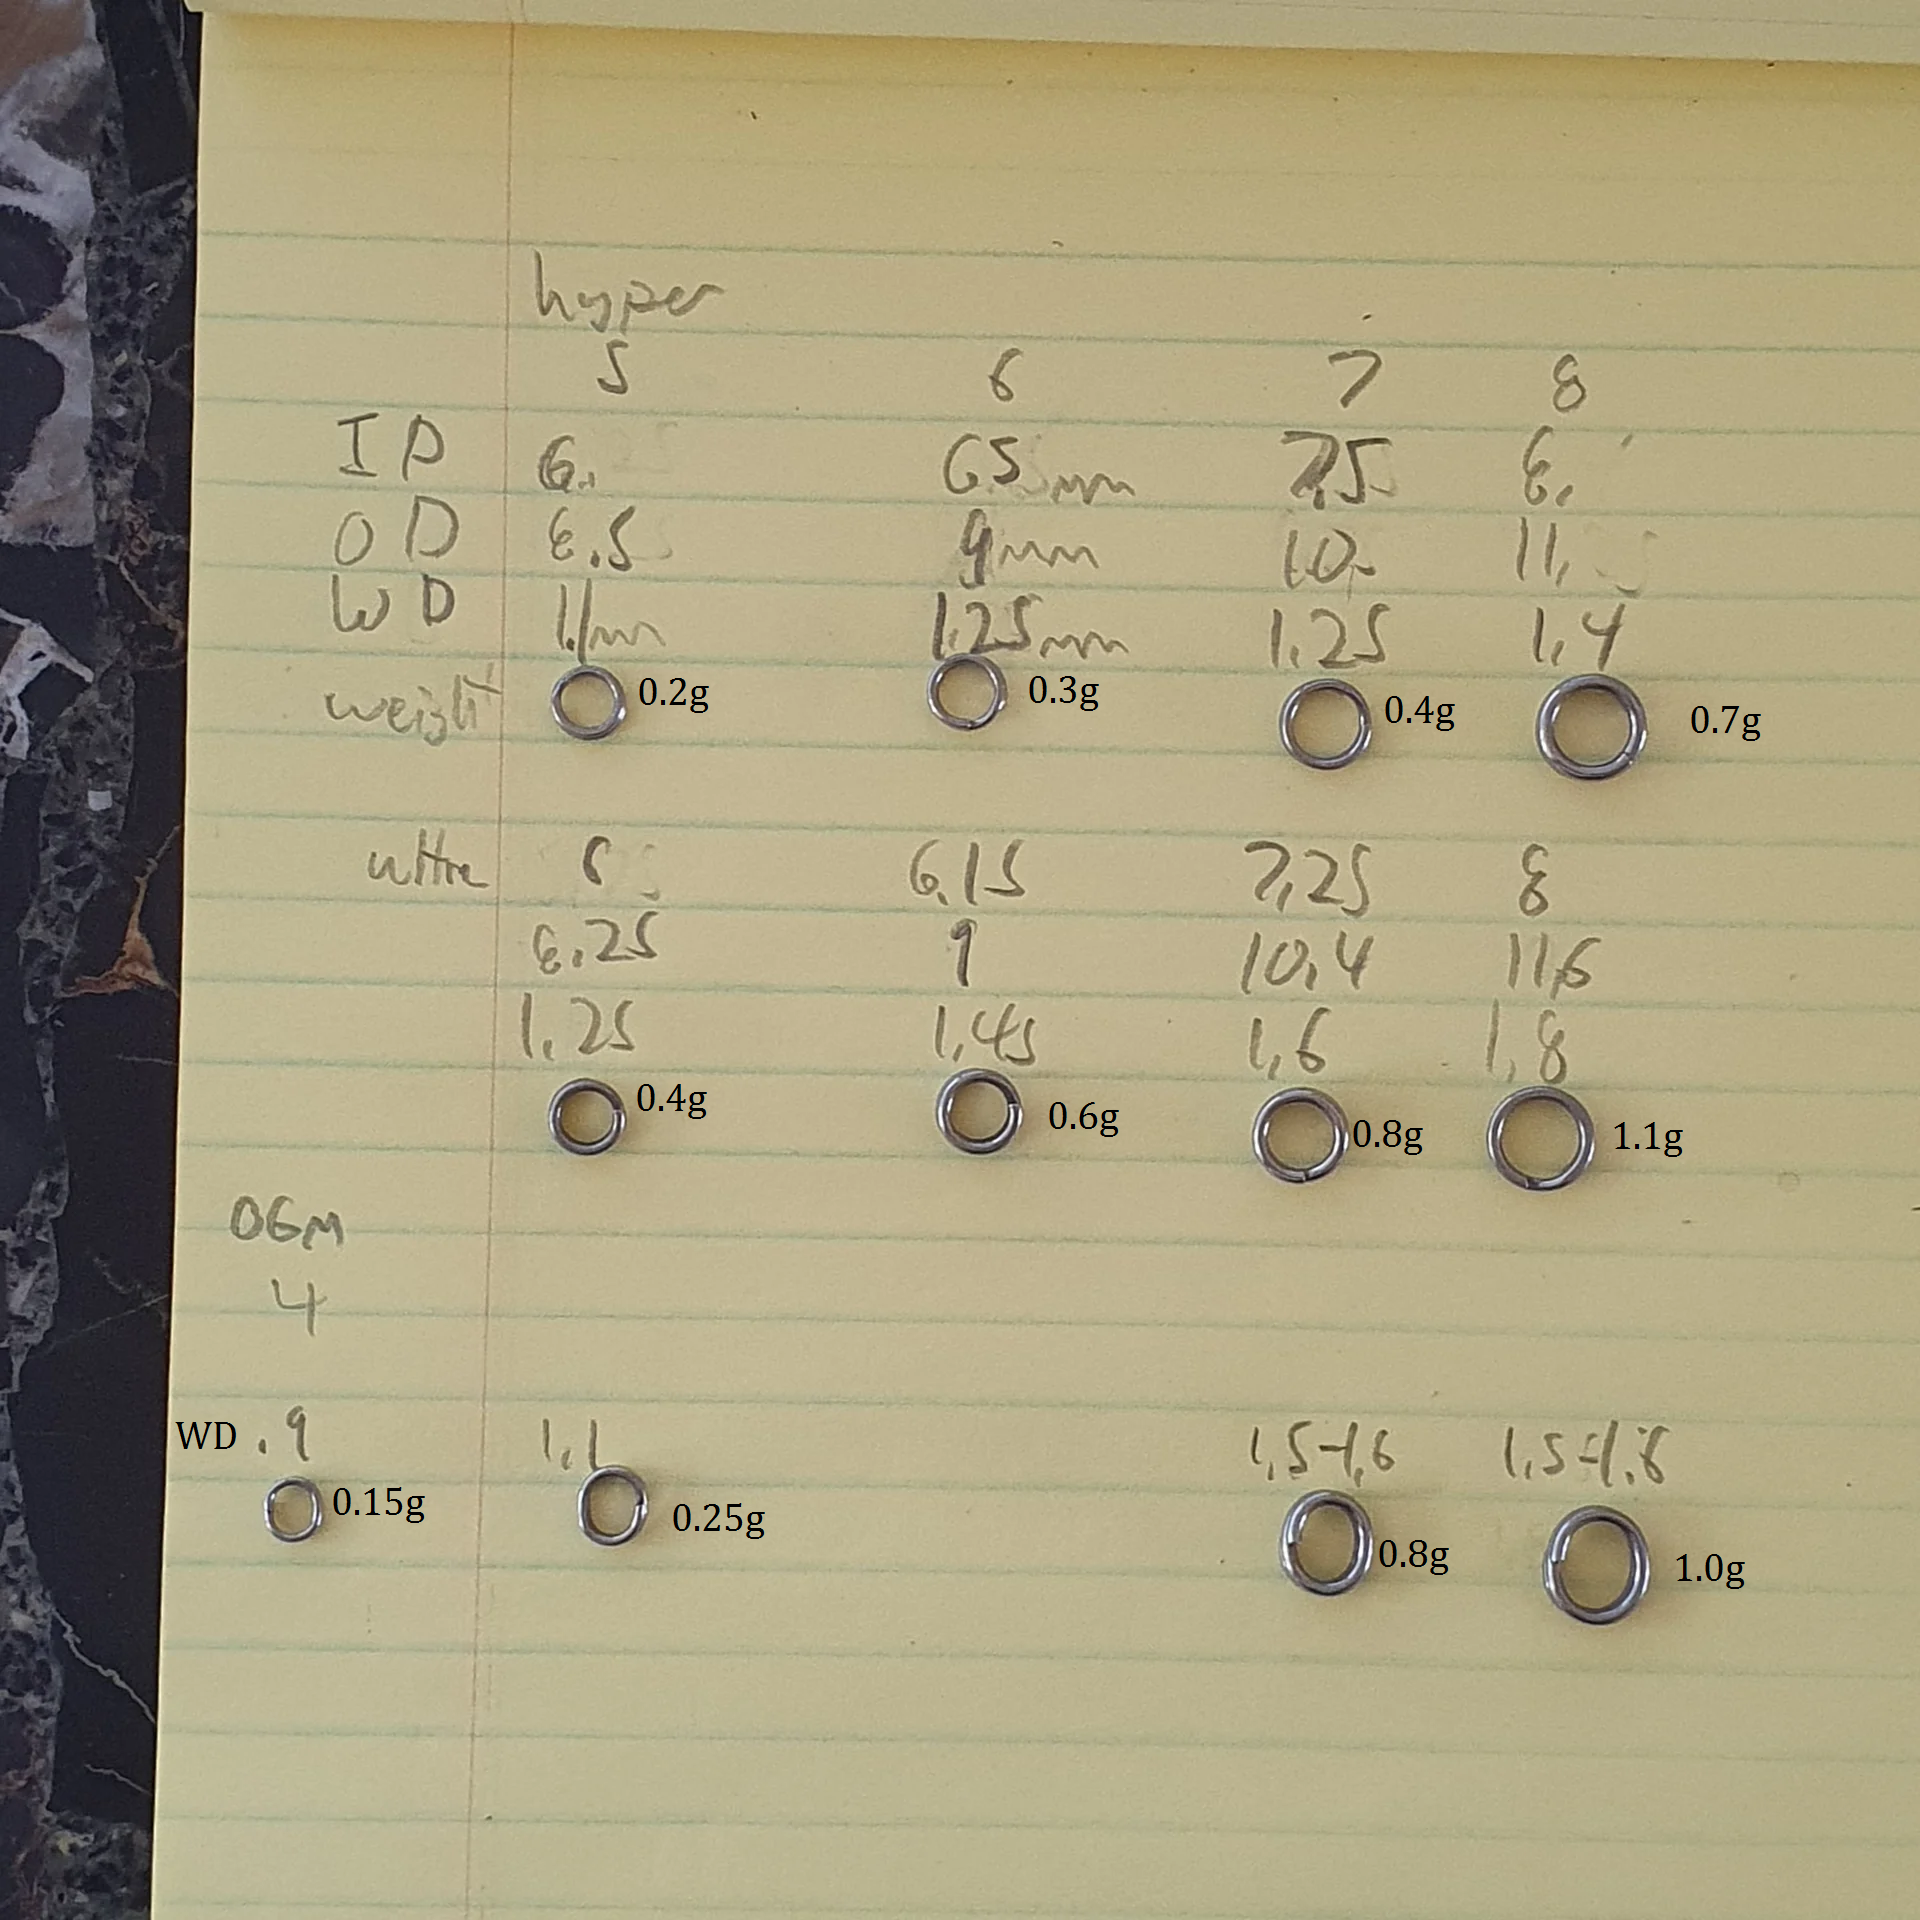 hyper
5 6 7 8
ID 6. 6.5mm 7.5 8.
OD 8.5 9mm 10. 11.
WD 1.1mm 1.25mm 1.25 1.4
weight 0.2g 0.3g 0.4g 0.7g
ultra 6.15 7.25 8
8.25 9 10.4 11.6
1.25 1.45 1.6 1.8
0.4g 0.6g 0.8g 1.1g
OGM
4
WD .9 1.1 1.5-1.6 1.5-1.6
0.15g 0.25g 0.8g 1.0g